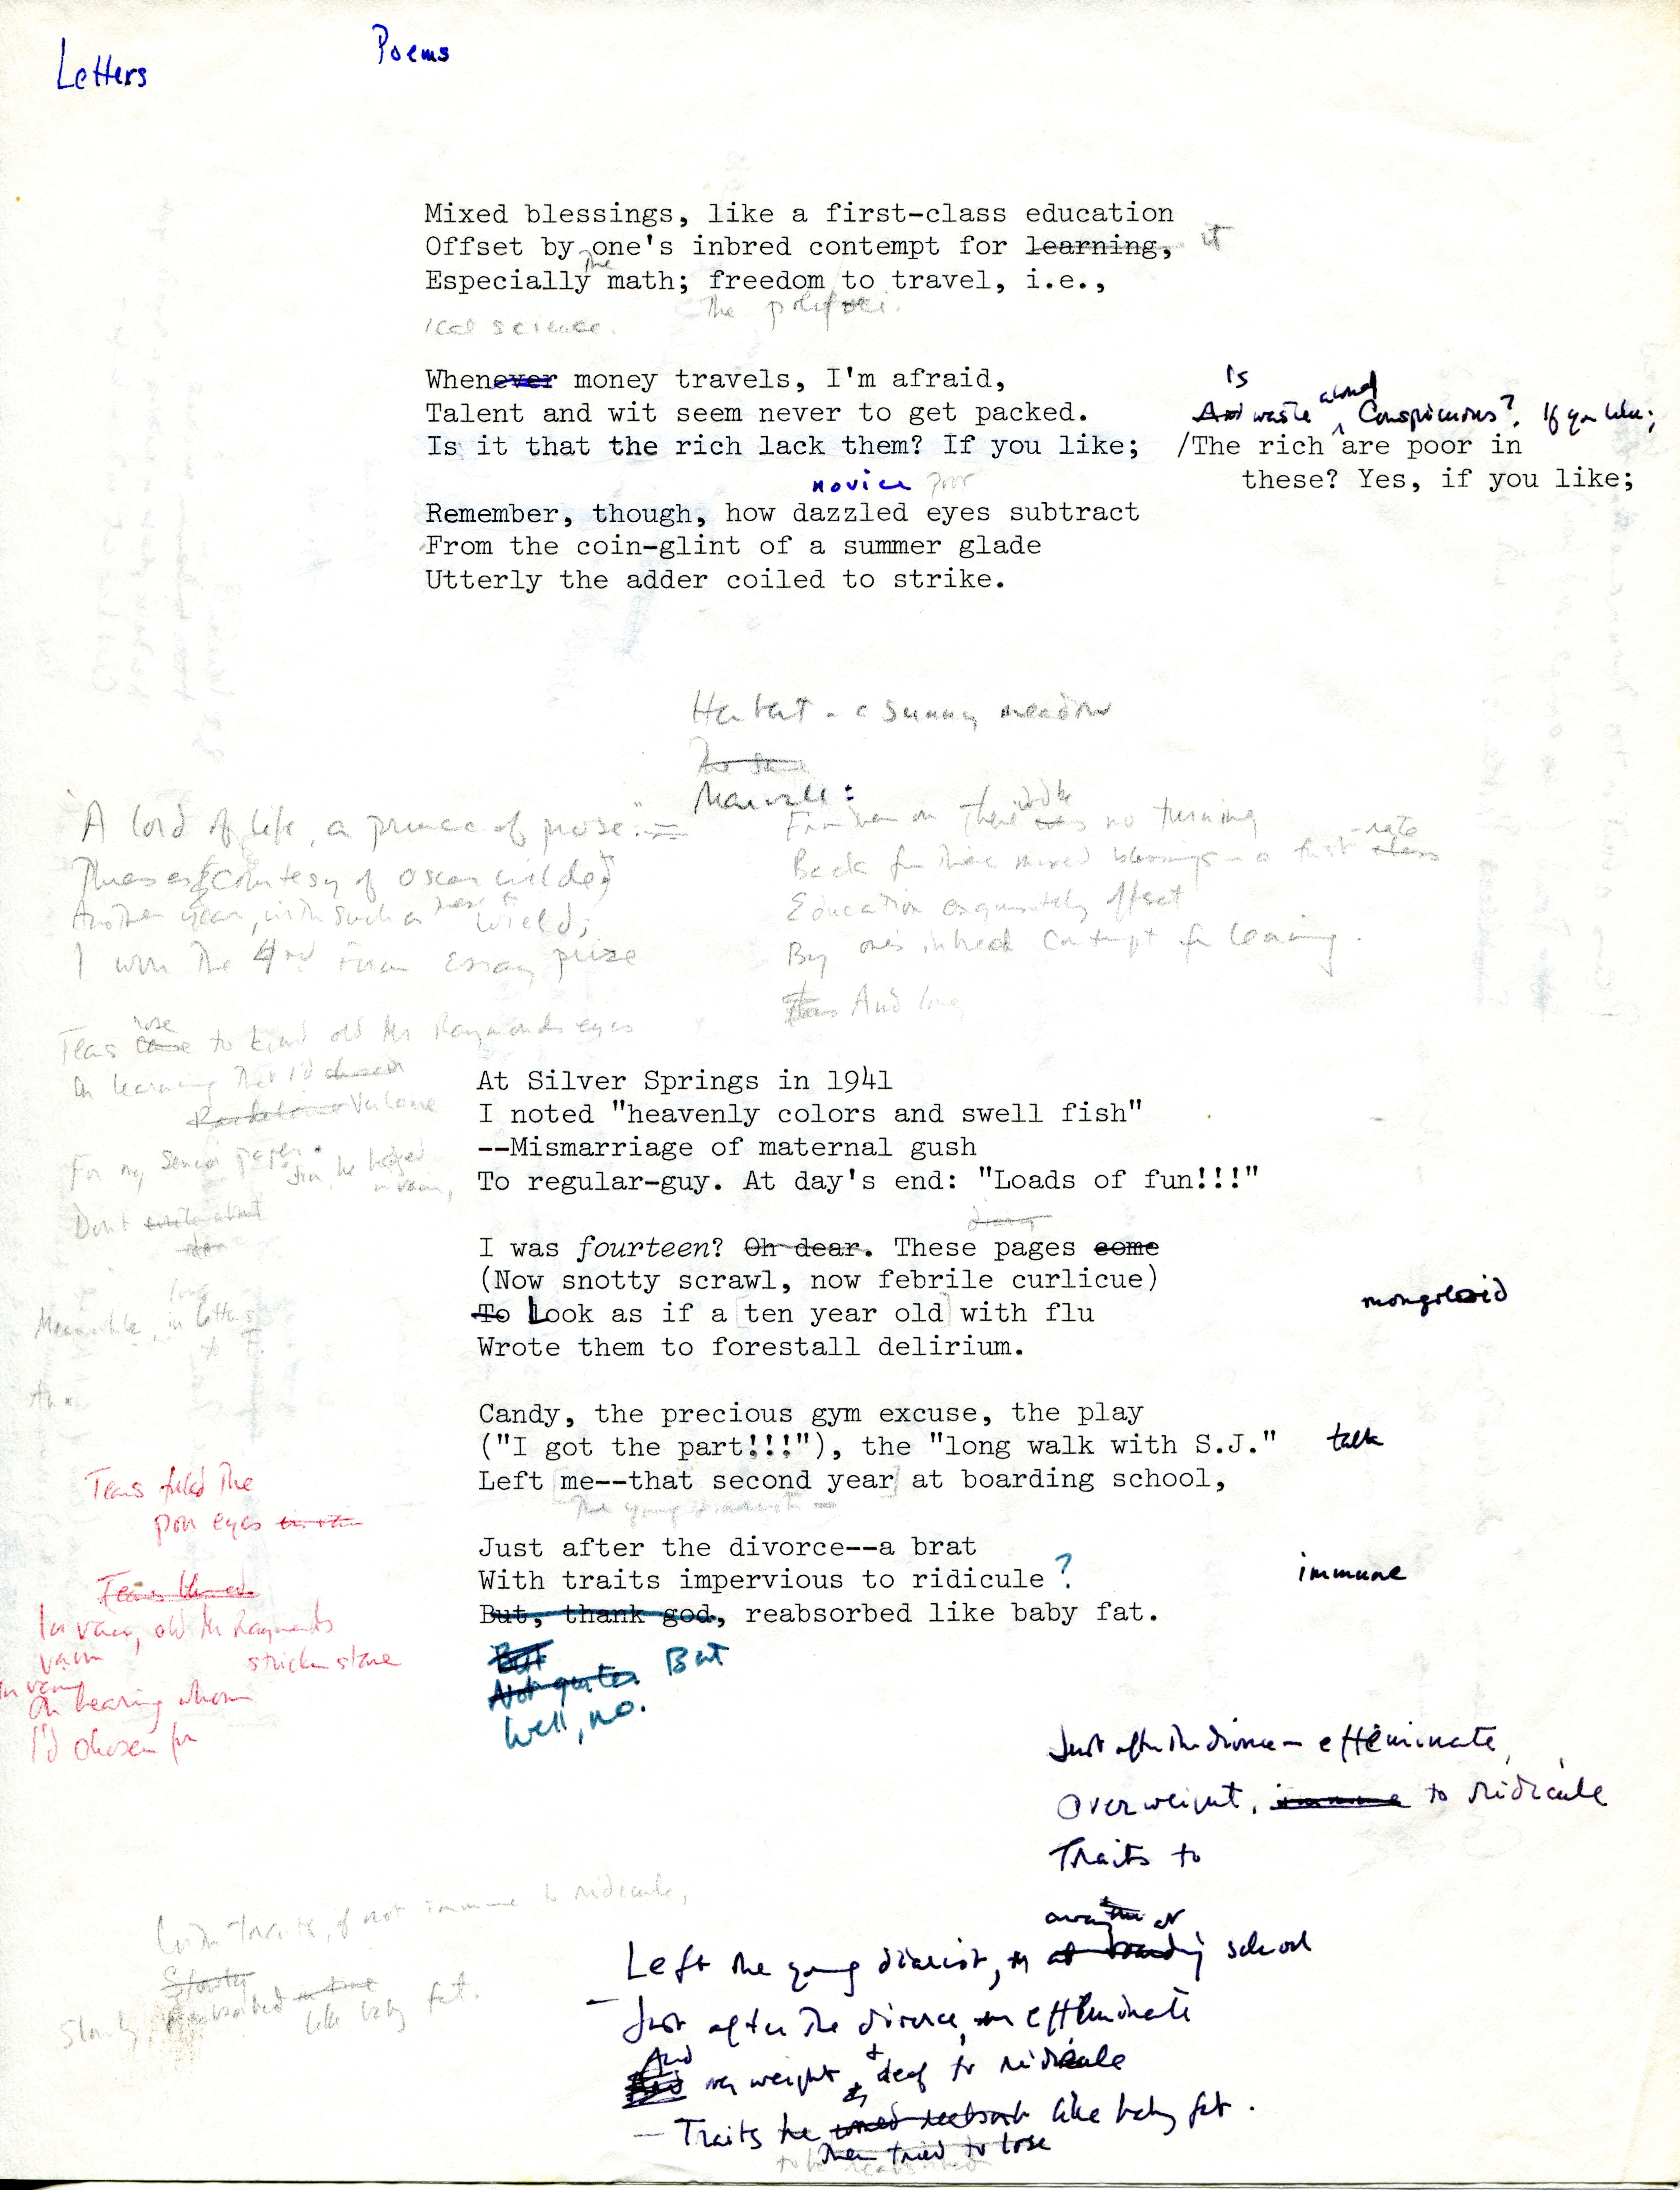 Letters
Poems
Mixed blessings, like a first-class education
Offset by one's inbred contempt for learning, it
the
Especially math; freedom to travel, i.e.,
The polit
ical science.
Whenever money travels, I'm afraid,
Talent and wit seem never to get packed.
Is it that the rich lack them? If you like;
Is
waste Conspicuous? If you like;
/The rich are poor in
these? Yes, if you like;
novice poor
Remember, though, how dazzled eyes subtract
From the coin-glint of a summer glade
Utterly the adder coiled to strike.
Herbert - a sunny meadow
"A lord of life, a prince of prose"
Phrases (courtesy of Oscar Wilde)
Another year, with such as these to wield,
I won the 4 Form essay prize
From then on there was no turning
would be
Back from these mixed blessings - a first class
-rate
Education exquisitely offset
By one's inbred contempt for learning.
And long
rose
Tears came to kind old Mr Raymonds eyes
On learning that I'd chosen
Verlaine
For my Senior paper.
Jim, he begged
in vain,
Don't
At Silver Springs in 1941
I noted "heavenly colors and swell fish"
--Mismarriage of maternal gush
To regular-guy. At day's end: "Loads of fun!!!"
I was fourteen? Oh dear. These pages come
(Now snotty scrawl, now febrile curlicue)
To Look as if a [ten year old] with flu
mongoloid
Wrote them to forestall delirium.
long
Meanwhile, in letters
to F.
Candy, the precious gym excuse, the play
("I got the part!!!"), the "long walk with S.J."
talk
Left [me--that second year] at boarding school,
The young diarist -
Just after the divorce--a brat
With traits impervious to ridicule?
immune
But, thank god, reabsorbed like baby fat.
But
Not quite. But
Well, no.
Tears filled the
poor eyes
In vain, old Mr Raymonds
vain
stricken stare
In vain
On hearing whom
I'd chosen for
Just after the divorce - effeminate,
Overweight, immune to ridicule
Traits to
away at
Left the young diarist, at boarding school
- Just after the divorce, effeminate
And
overweight, + deaf to ridicule
- Traits he like baby fat.
then tried to lose
to be reabsorbed
With traits, if not immune to ridicule,
Slowly
Slowly Reabsorbed in time
like baby fat.